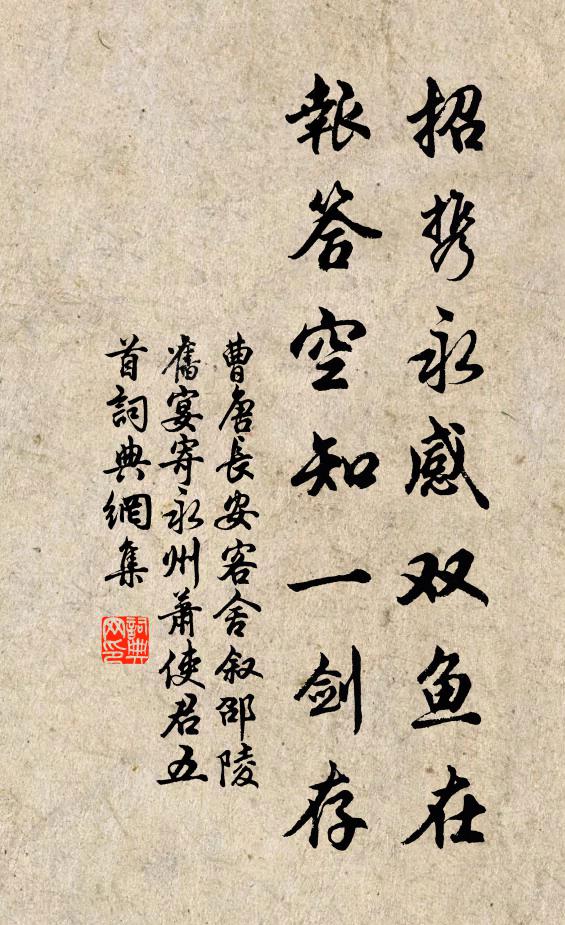 招携永感双鱼在
報答空知一剑存
曹唐長安客舍叙邵陵
舊宴寄永州萧使君五
首詞典網集
詞典網印